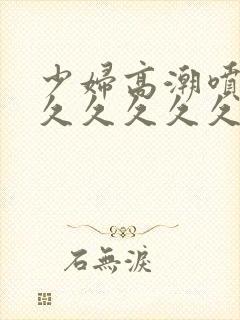 少婦高潮噴
久久久久久
石無淚